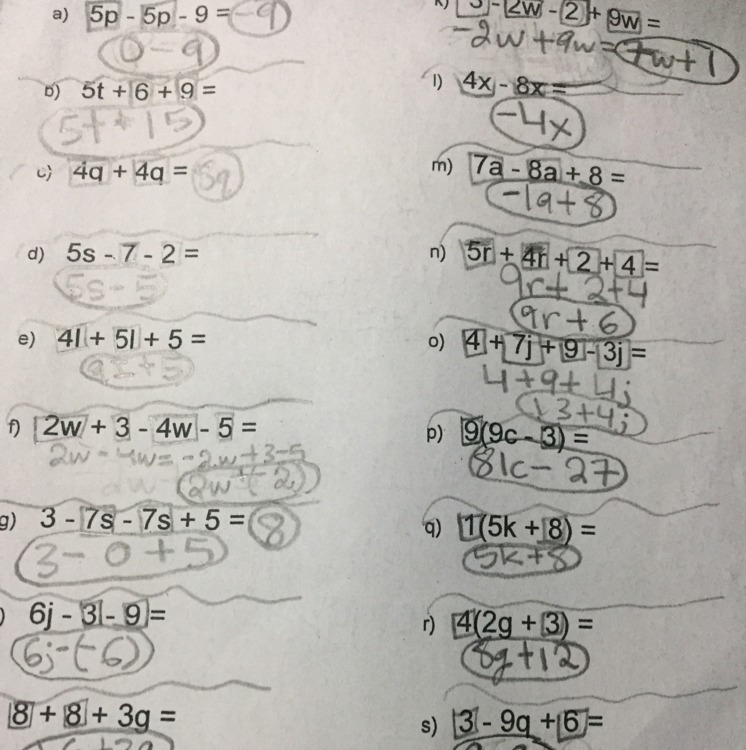 a) 5p - 5p - 9 = -9
0 - 9
b) 5t + 6 + 9 =
5t + 15
c) 4q + 4q = 8q
d) 5s - 7 - 2 =
5s - 5
e) 4l + 5l + 5 =
f) 2w + 3 - 4w - 5 =
2w - 4w = -2w + 3 - 5
g) 3 - 7s - 7s + 5 = 8
3 - 0 + 5
) 6j - 3 - 9 =
6j - (-6)
8 + 8 + 3g =
3 - 2w - 2 + 9w =
-2w + 9w = 7w + 1
l) 4x - 8x =
-4x
m) 7a - 8a + 8 =
-1a + 8
n) 5r + 4r + 2 + 4 =
9r + 2 + 4
9r + 6
o) 4 + 7j + 9 - 3j =
4 + 9 + 4j
13 + 4j
p) 9(9c - 3) =
81c - 27
q) 1(5k + 8) =
5k + 8
r) 4(2g + 3) =
8g + 12
s) 3 - 9q + 6 =